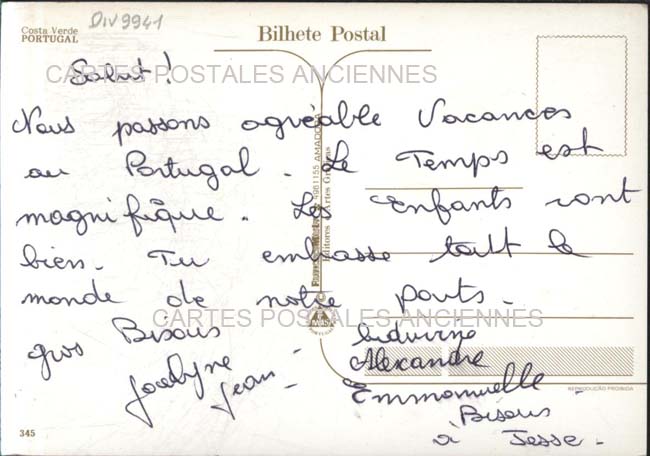 DIV9941
Costa Verde
PORTUGAL
Bilhete Postal
CARTES POSTALES ANCIENNES
Salut!
Nous passons agréable Vacances
au Portugal. Le Temps est
magnifique. Les Enfants sont
bien. Tu embrasse tout le
monde de notre parts.
CARTES POSTALES ANCIENNES
gros Bisous
Jocelyne - Ludivine
Jean - Alexandre
Emmanuelle
Bisous
à Jesse.
REPRODUÇÃO PROIBIDA
345
PORTUGAL
Editores Artes Gráficas
AMADORA